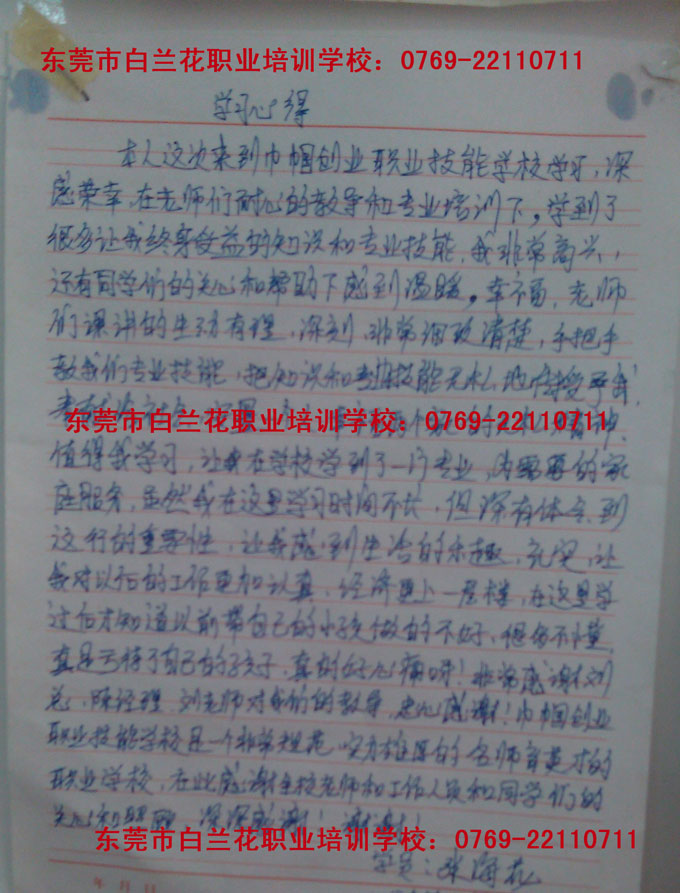 东莞市白兰花职业培训学校：0769-22110711
学习心得
本人这次来到巾帼创业职业技能学校学习，深
感荣幸，在老师们耐心的教导和专业培训下，学到了
很多让我终身受益的知识和专业技能，我非常高兴，
还有同学们的关心和帮助下感到温暖，幸福，老师
们课讲的生动有理，深刻，非常细致清楚，手把手
教我们专业技能，把知识和专业技能无私地传授予我们
东莞市白兰花职业培训学校：0769-22110711
值得我学习，让我在学校学到了一门专业，内需要的家
庭服务，虽然我在这里学习时间不长，但深有体会，到
这行的重要性，让我感到生活的乐趣，充实，让
我对以后的工作更加认真，经济更上一层楼，在这里学
过后才知道以前带自己的小孩做的不好，很多不懂，
真是亏待了自己的孩子，真的好心痛呀！非常感谢刘
总，陈经理，刘老师对我们的教导，忠心感谢！巾帼创业
职业技能学校是一个非常规范，实力雄厚的名师育英才的
职业学校，在此感谢全校老师和工作人员和同学们的
关心和照顾，深深感谢！谢谢！
东莞市白兰花职业培训学校：0769-22110711
学员：张海花
年 月 日